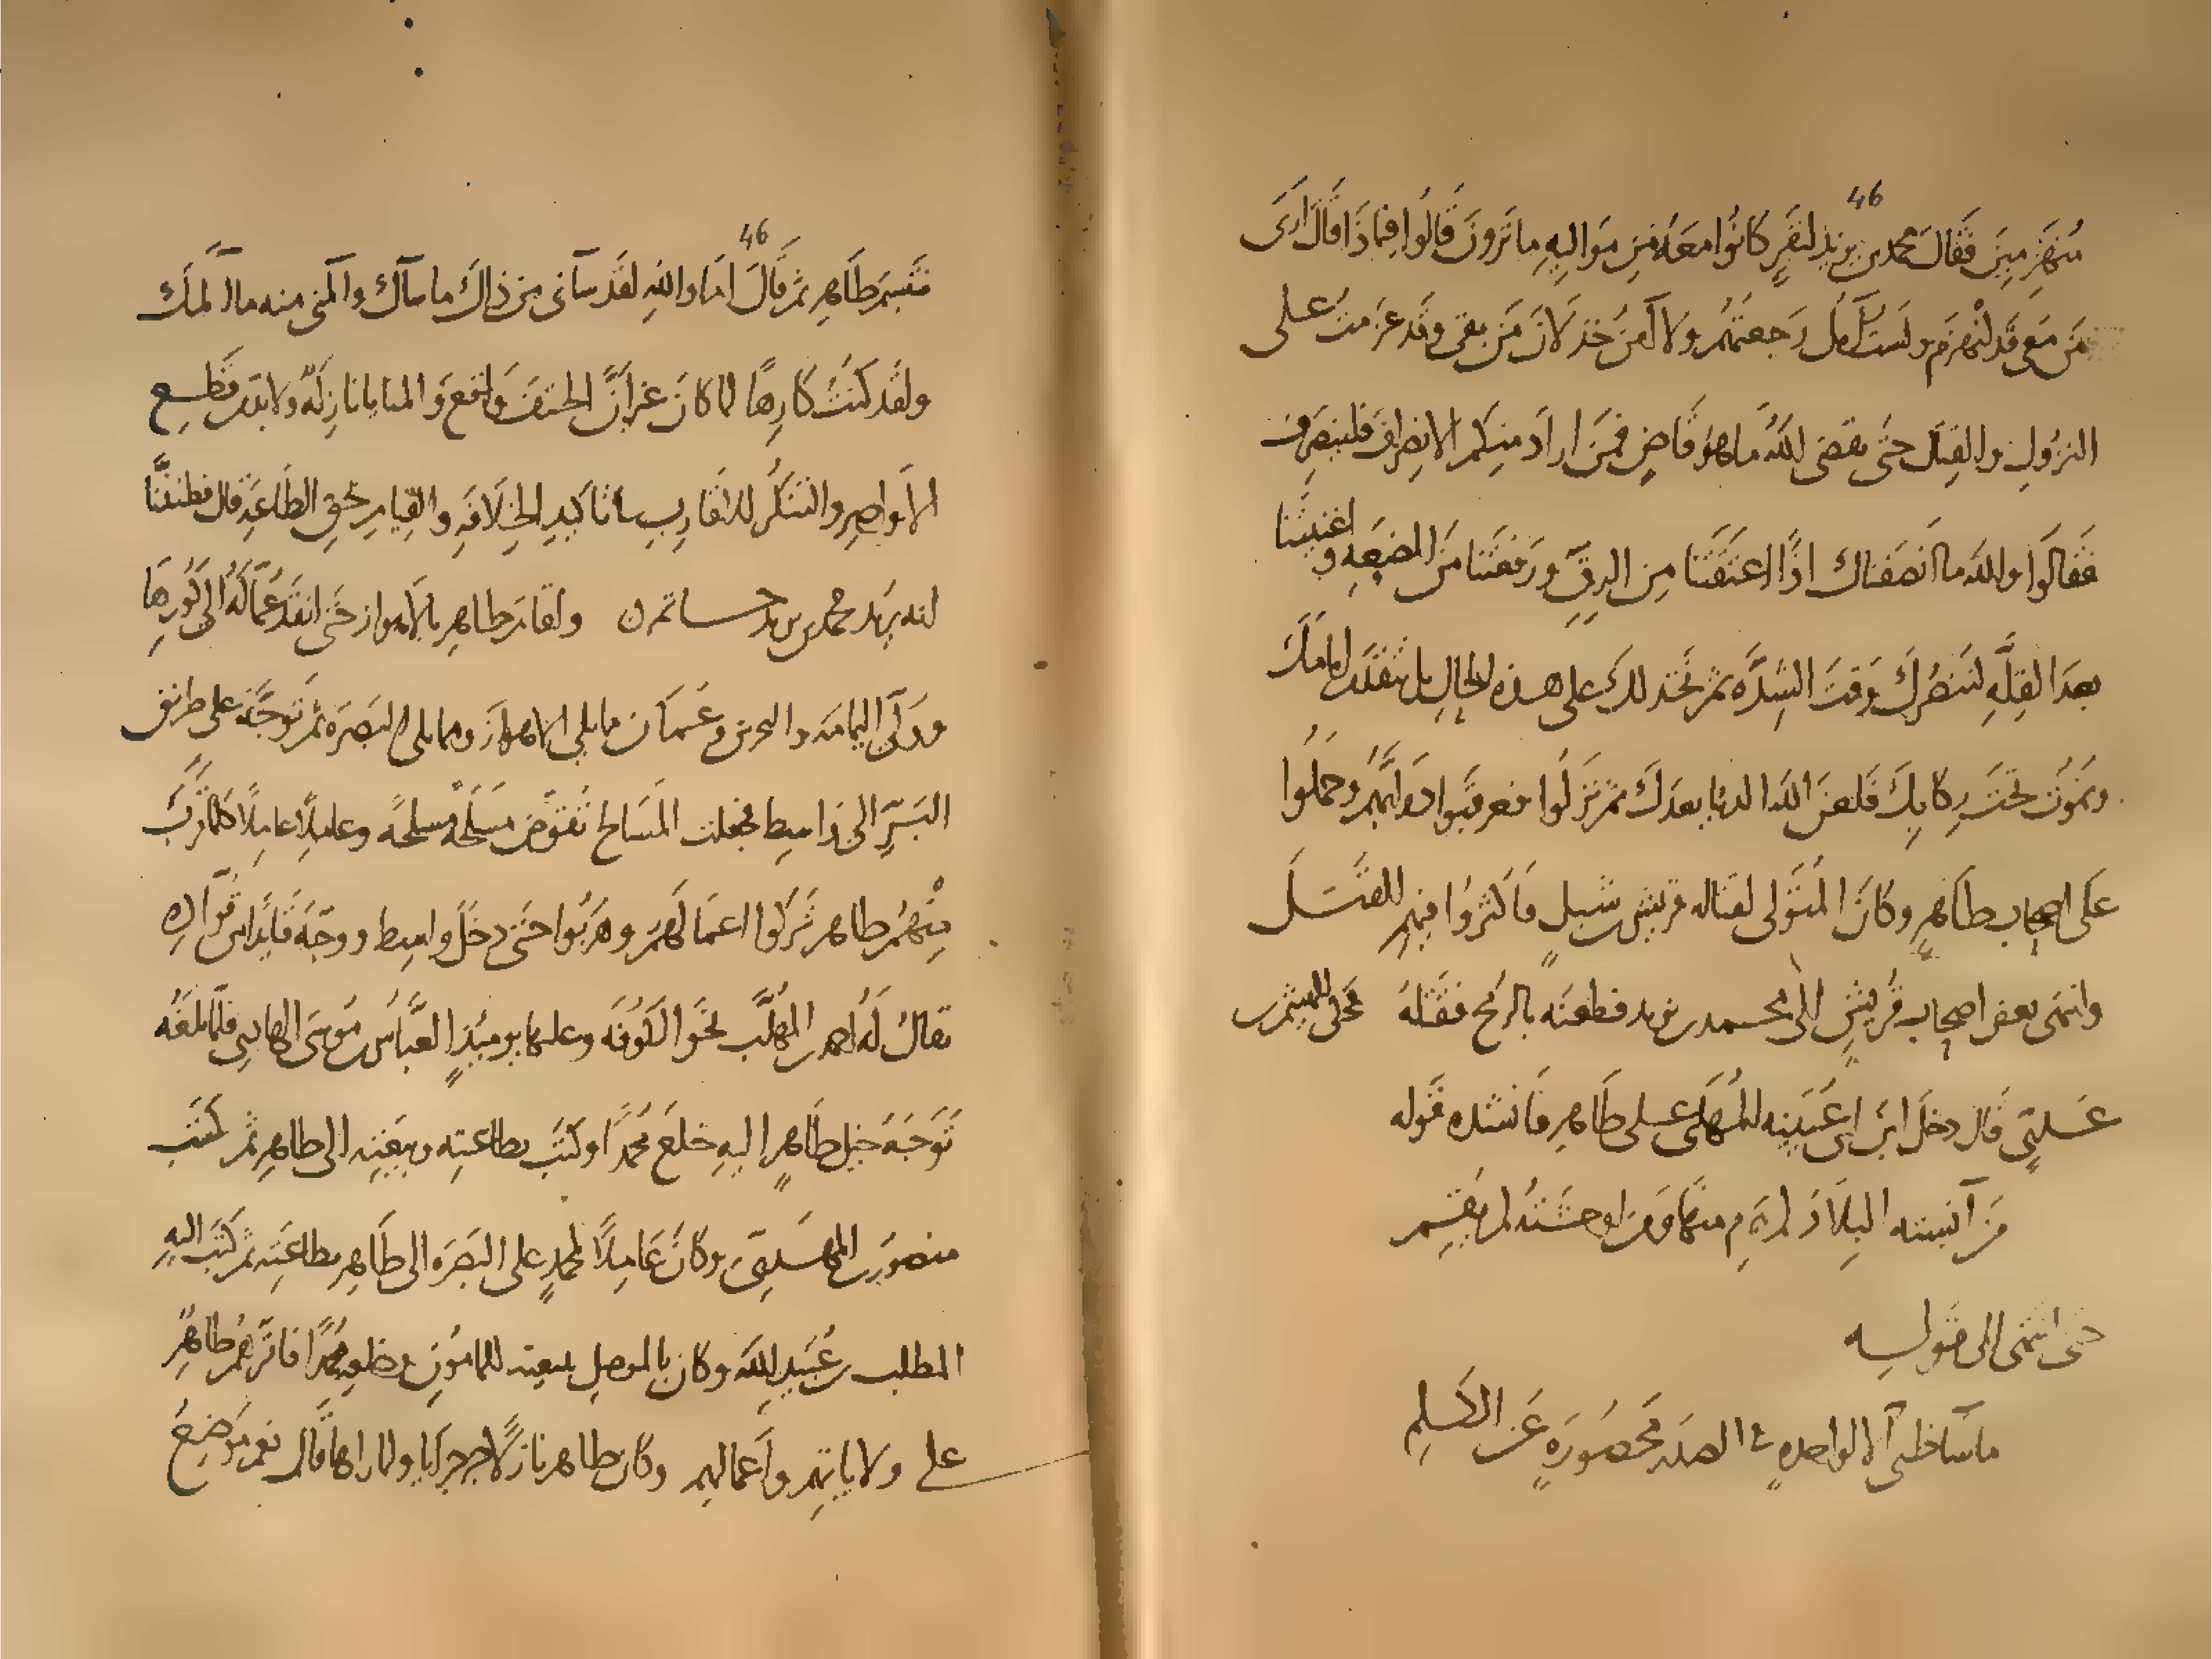 46
منهزمين فقال محمد بن يزيد لنفر كانوا معه من مواليه ما ترون قالوا فيماذا قال ارى
من معى قد انهزم ولست آمل رجعتهم ولا آمن خذلان من بقى وقد عزمت على
النزول والقتال حتى يقضى الله ما هو قاض فمن اراد منكم الانصراف فلينصرف
فقالوا والله ما انصفناك اذًا اعتقتنا من الرق ورفعتنا من الضيعه واغنيتنا
بعد القله لننصرك وقت الشدّه ثم نخذلك على هذه الحال بل نتقدم امامك
ونموت تحت ركابك فلعن الله الدنيا بعدك ثم نزلوا فعرقبوا دوابهم وحملوا
على اصحاب طاهر وكان المتولى لقتاله قريش بن شبل فاكثروا فيهم القتل
وانتهى بعض اصحاب قريش الى محمد بن يزيد فطعنه بالرمح فقتله فحكى الهيثم بن
عدى قال دخل ابن ابى عيينه المهلبى على طاهر فانشده قوله
من آنسته البلاد لم يرم منها ومن اوحشته لم يقم
حتى انتهى الى قوله
ما ساء ظنى الا لواحدة فى الصدر محصورة عن الكلم
46
فتبسم طاهر ثم قال اما والله لقد ساءنى من ذاك ما ساك وآلمنى منه ما آلمك
ولقد كنت كارهًا لما كان غير ان الحتف واقع والمنايا نازله ولا بد من قطع
الاواصر والتنكر للاقارب فى تاكيد الخلافه والقيام بحق الطاعة قال فظننّا
انه يريد محمد بن يزيد بن حاتم واقام طاهر بالاهواز حتى انفذ عماله الى كورها
وولّى اليمامه والبحرين وعمان مما يلى الاهواز ومما يلى البصره ثم توجّه على طريق
البرّ الى واسط فجعلت المسالح تتقوض مسلحة مسلحةً وعاملًا عاملًا كلما قرب
منهم طاهر تركوا اعمالهم وهربوا حتى دخل واسط ووجّه قايدًا من قواده
يقال له احمد بن المهلب نحو الكوفه وعليها يوميذٍ العباس بن موسى الهادى فلما بلغه
توجه خيل طاهر اليه خلع محمدًا وكتب بطاعته وبيعته الى طاهر ثم كتب
منصور بن المهدى وكان عاملًا لمحمد على البصره الى طاهر بطاعته ثم كتب اليه
المطلب بن عبيد الله وكان بالموصل ببيعته للمامون وخلعه محمدًا فاقرّهم طاهر
على ولاياتهم واعمالهم وكان طاهر نازلًا جرجرايا ولما راها قال نعم موضع